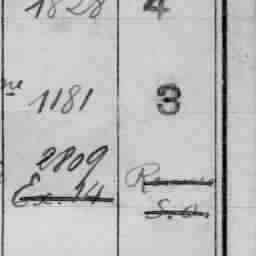 1828 4
ne 1181 3
2809
Ex. 14
S. O.